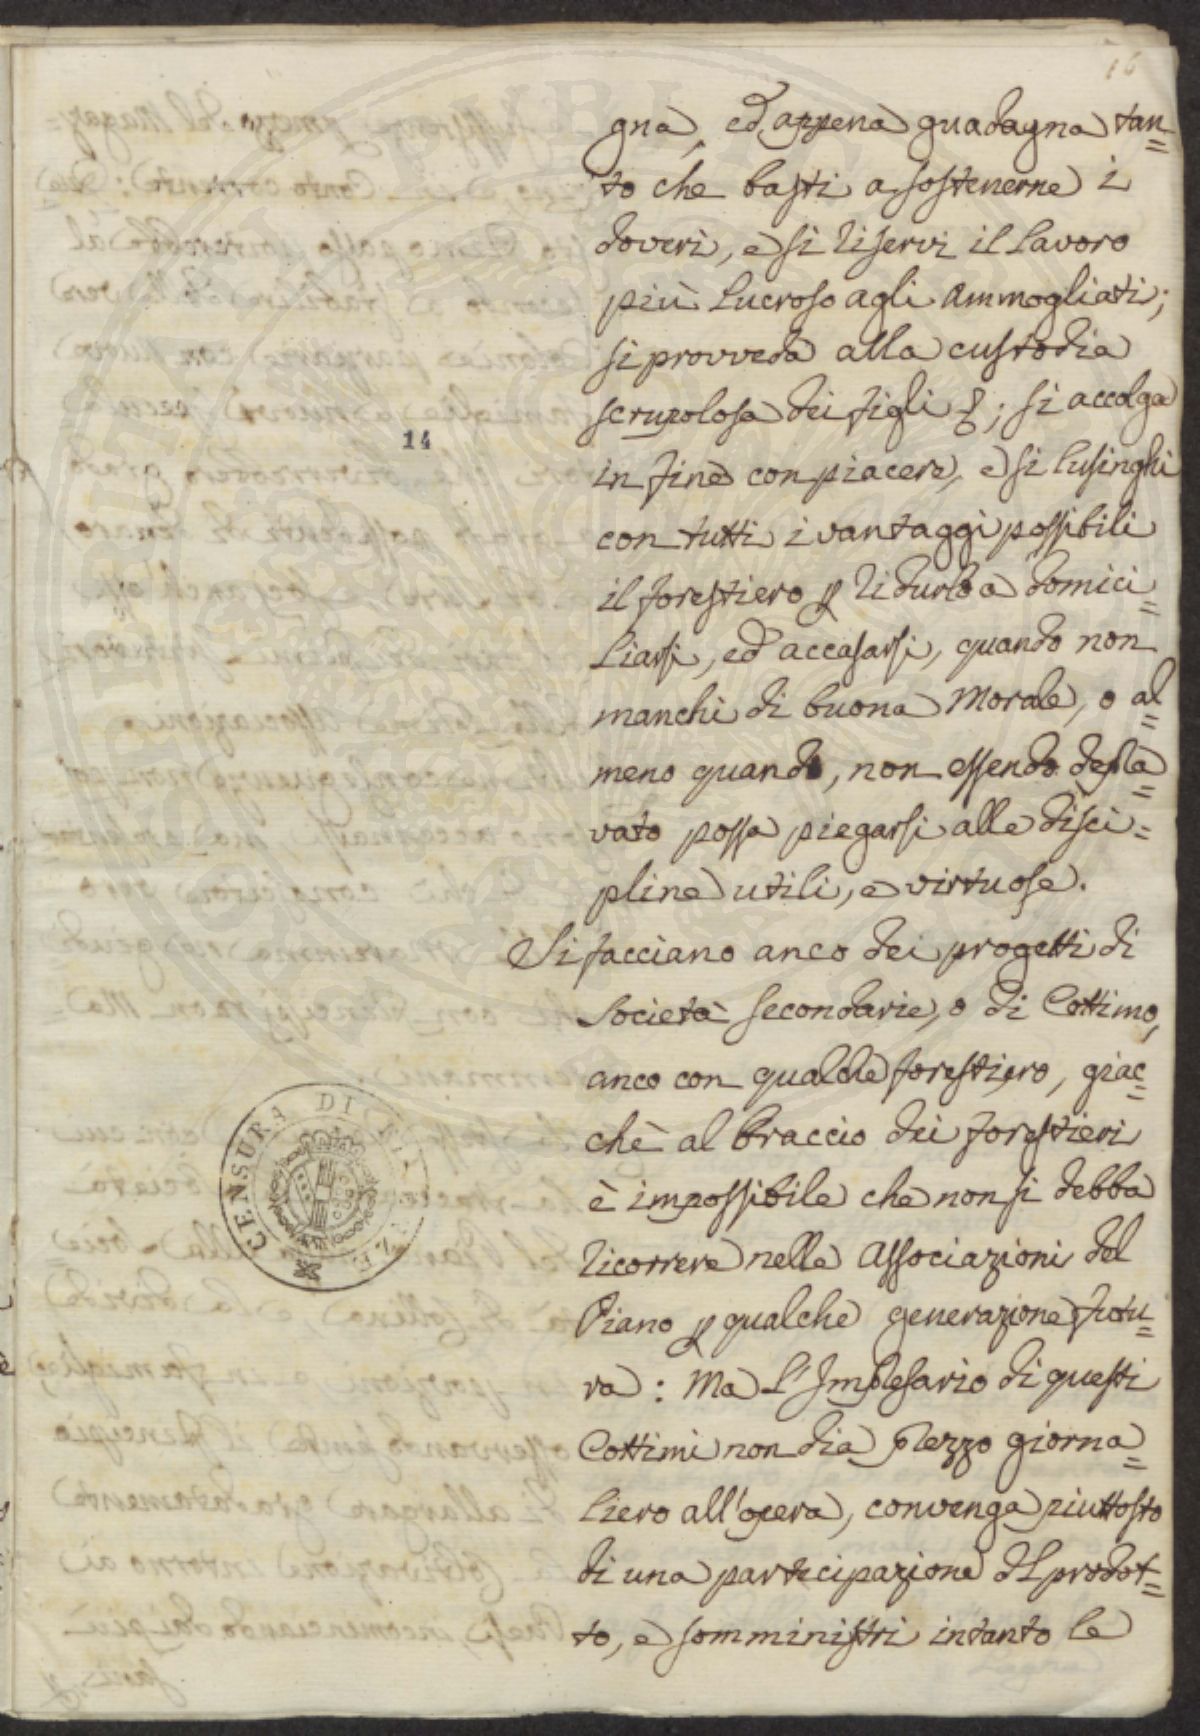 16
gna, ed appena guadagna tan=
to che basti a sostenerne i
doveri, e si riservi il lavoro
più lucroso agli Ammogliati;
si provveda alla custodia
scrupolosa dei figli &; si accolga
in fine con piacere, e si lusinghi
14
con tutti i vantaggi possibili
il forestiero p ridurlo a domici=
liarsi, ed accasarsi, quando non
manchi di buona Morale, o al=
meno quando, non essendo depra=
vato possa piegarsi alle disci=
pline utili, e virtuose.
Si facciano anco dei progetti di
Società secondarie, o di Cottimo,
anco con qualche forestiero, giac=
chè al braccio dei forestieri
è impossibile che non si debba
ricorrere nelle Associazioni del
Piano p qualche generazione futu=
ra: Ma l'Impresario di questi
Cottimi non dia prezzo giorna=
liero all'opera, convenga piuttosto
di una partecipazione del prodot=
to, e somministri intanto le
CENSURA DI